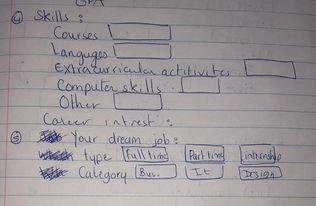 GPA
④ Skills :
Courses
Languges
Extracurricular actitivites
Computer skills
Other
Career intrest :
⑤ Your dream job :
type Full time Part time internship
Category Bus. It Design